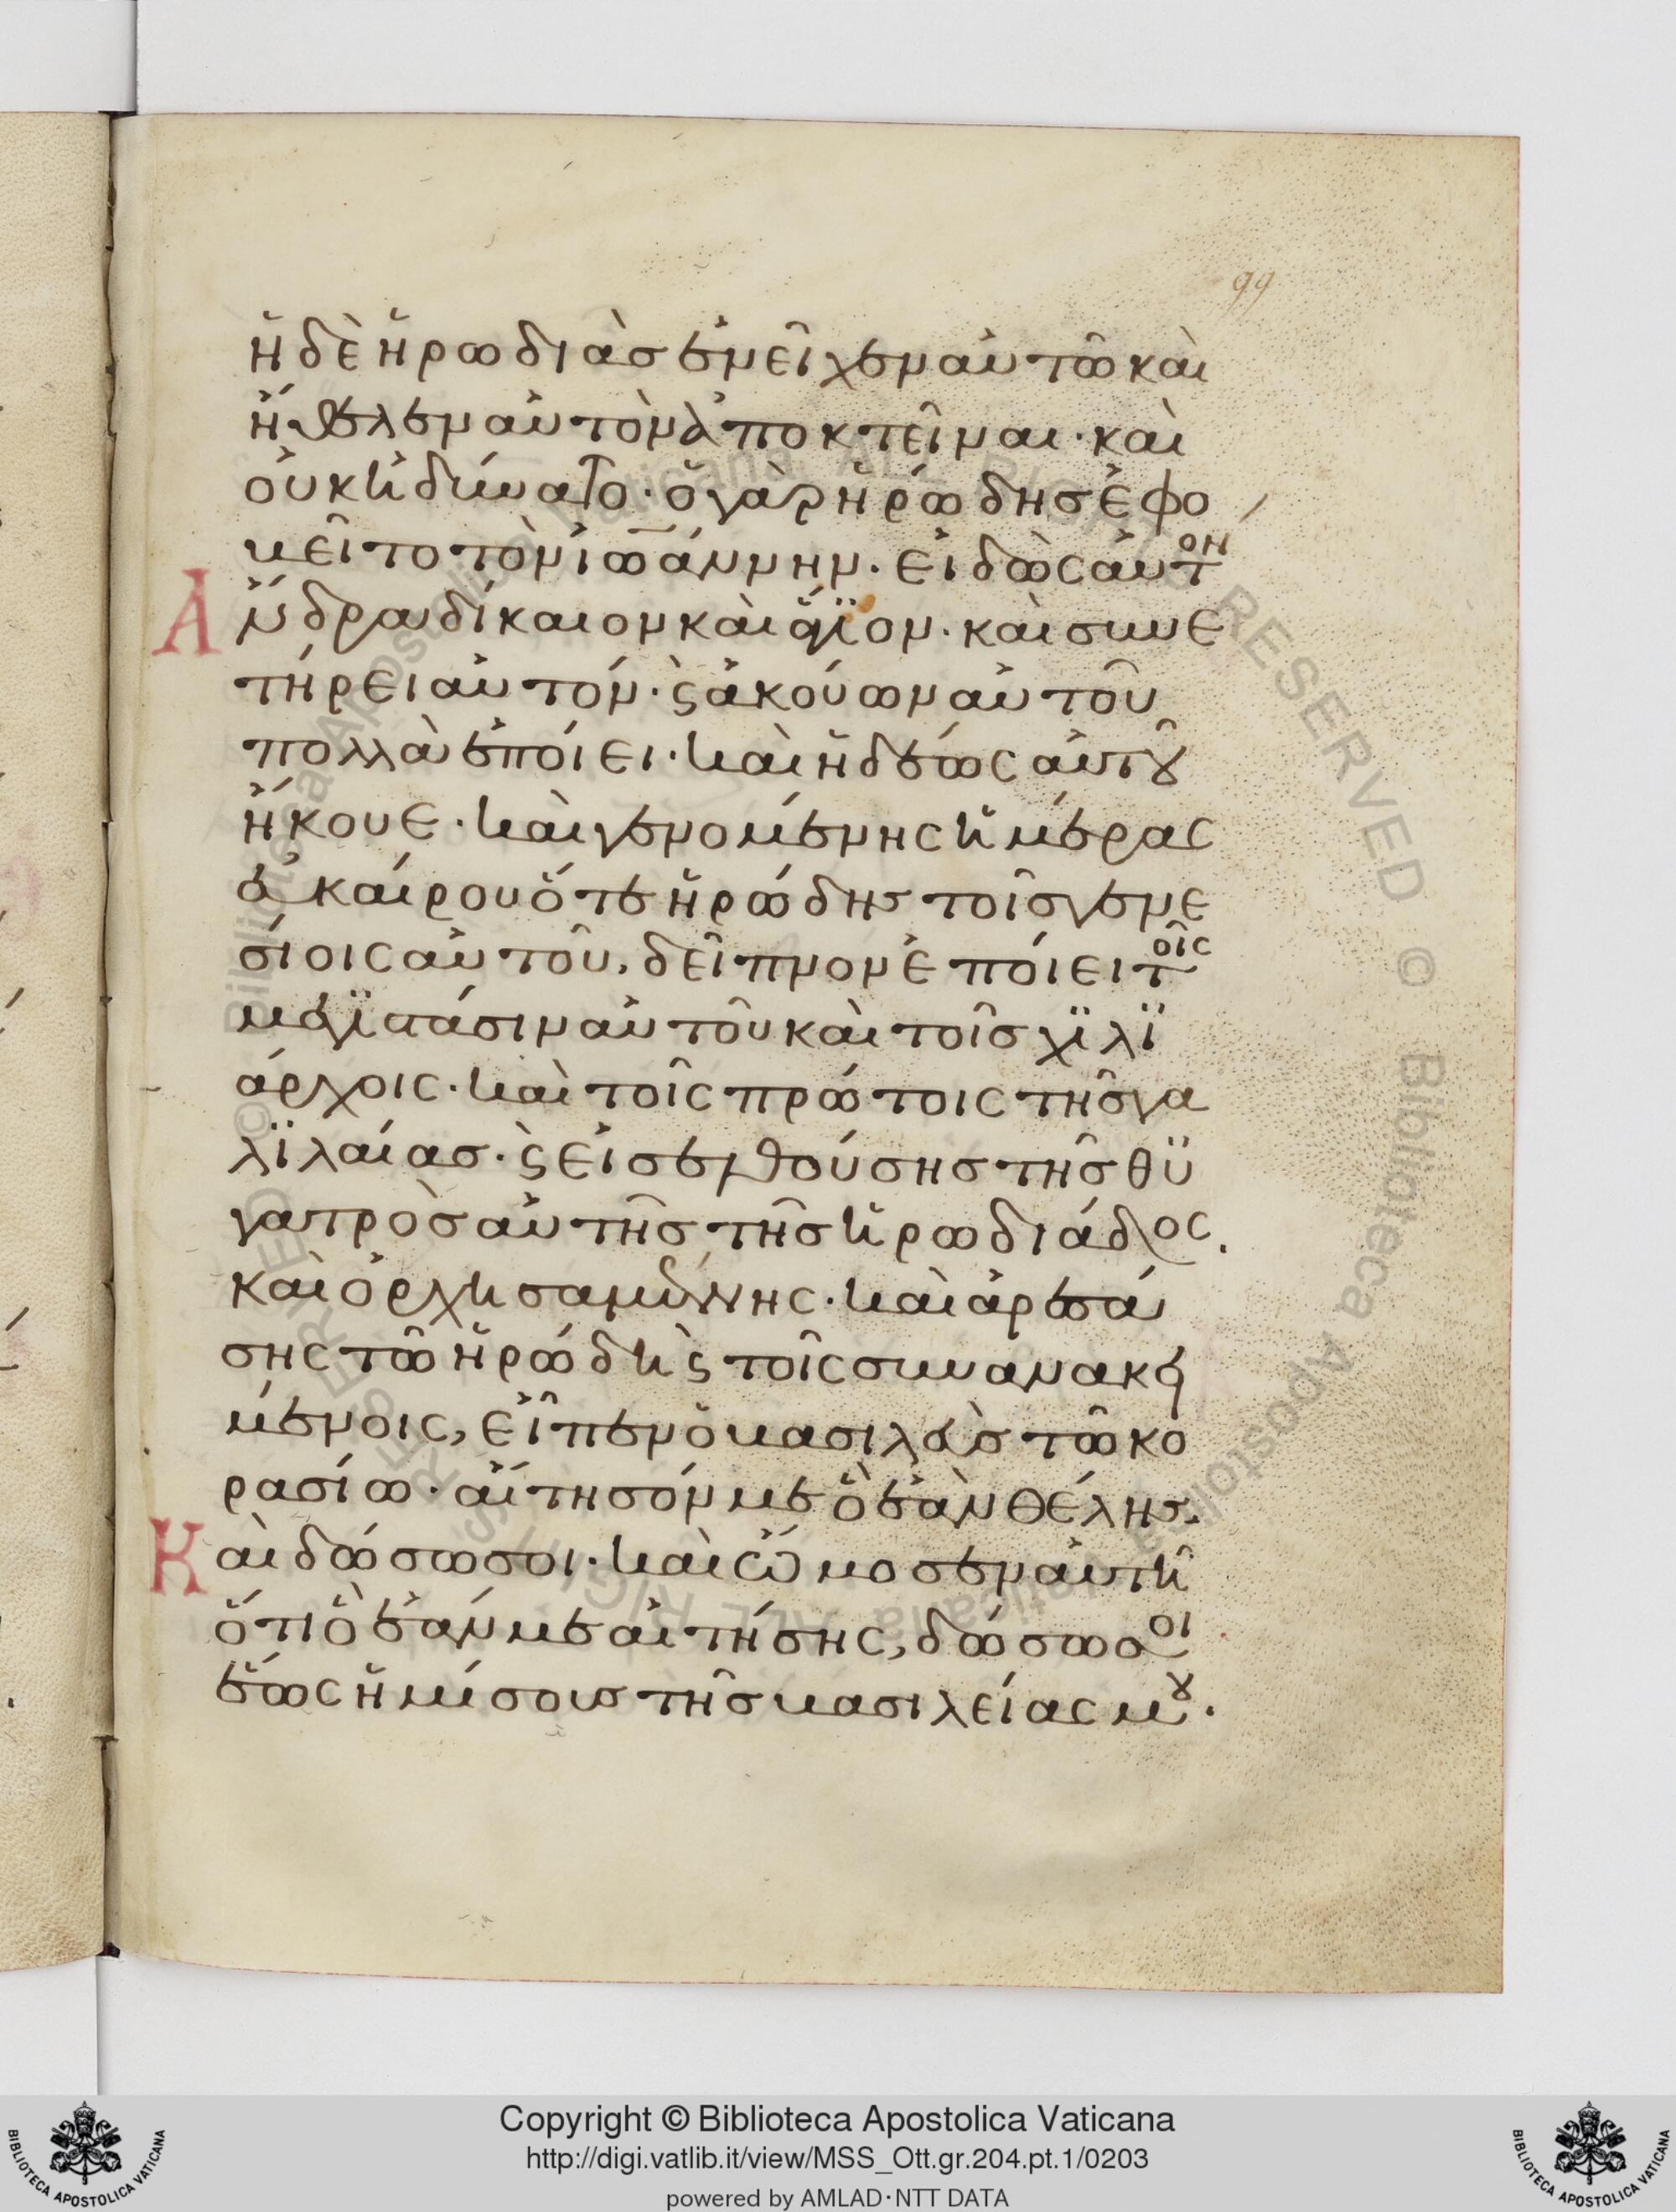 99
ἡ δὲ ἡρωδιὰσ ἐνεῖχεν αὐτῶ καὶ
ἤθελεν αὐτὸν ἀποκτεῖναι· καὶ
οὐκ ἠδύνατο· ὁ γὰρ ἡρώδησ ἐφο
βεῖτο τὸν ἰωάννην· εἰδὼς αὐτον
Ἄνδρα δίκαιον καὶ ἅγϊον· καὶ συνε
τήρει αὐτόν· ϛ̀ ἀκούων αὐτοῦ
πολλὰ ἐποίει· καὶ ἡδέως αὐτοῦ
ἤκουε· καὶ γενομένης ἡμέρας
εὐκαίρου ὅτε ἡρώδης τοῖσ γενε
σίοις αὐτοῦ, δεῖπνον ἐποίει τοῖς
μεγϊστάσιν αὐτοῦ καὶ τοῖσ χϊλϊ
άρχοις· καὶ τοῖς πρώτοις τῆσ γα
λϊλαίασ· ϛ̀ εἰσελθούσησ τῆσ θϋ
γατρὸσ αὐτῆσ τῆσ ἡρωδιάδος.
καὶ ὀρχησαμένης· καὶ ἀρεσά
σης τῶ ἡρώδη ϛ̀ τοῖς συνανακει
μένοις, εἶπεν ὁ βασιλεὺσ τῶ κο
ρασίω· αἴτησόν με ὃ ἐὰν θέλησ.
Καὶ δώσω σοι· καὶ ὤμοσεν αὐτῆ
ὅτι ὃ ἐάν με αἰτήσης, δώσω σοι
ἕως ἡμίσους τῆσ βασιλείας μου.
Copyright © Biblioteca Apostolica Vaticana
http://digi.vatlib.it/view/MSS_Ott.gr.204.pt.1/0203
powered by AMLAD·NTT DATA
BIBLIOTECA APOSTOLICA VATICANA
BIBLIOTECA APOSTOLICA VATICANA